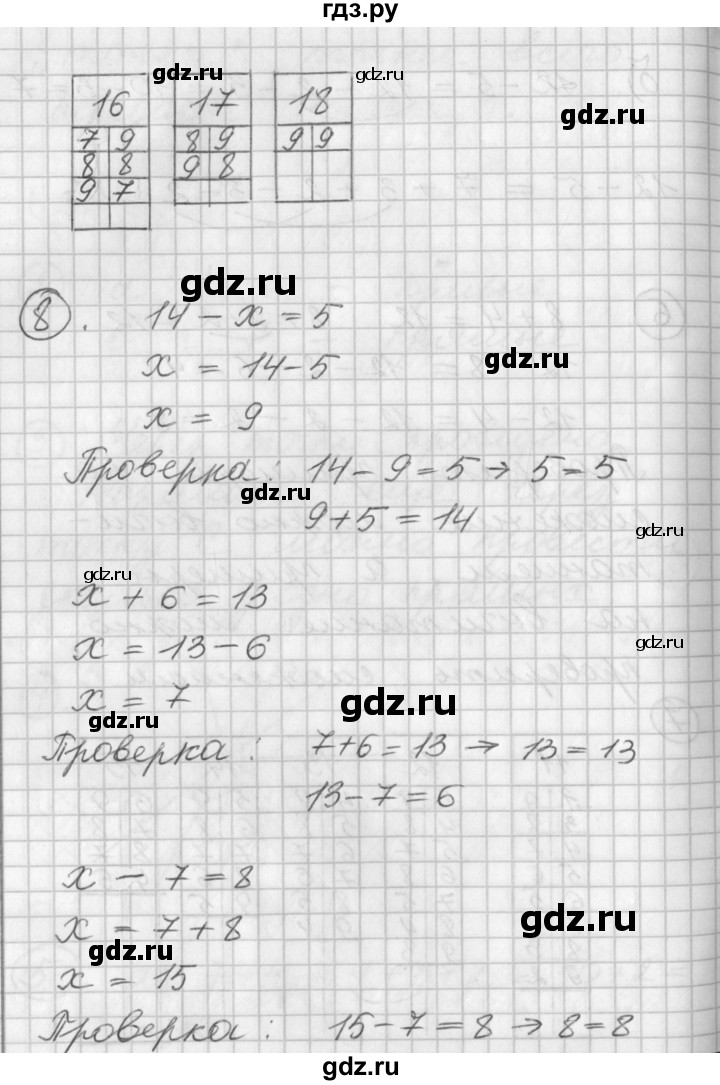 гдз.ру
gdz.ru gdz.ru
16 17 18
gdz.ru
7 9 8 9 9 9
8 8 9 8
9 7
gdz.ru
8. 14 - x = 5
x = 14 - 5
gdz.ru
x = 9
Проверка: 14 - 9 = 5 → 5 = 5
gdz.ru
9 + 5 = 14
gdz.ru
gdz.ru
x + 6 = 13
x = 13 - 6
gdz.ru
x = 7
gdz.ru
gdz.ru
Проверка: 7 + 6 = 13 → 13 = 13
13 - 7 = 6
x - 7 = 8
x = 7 + 8
gdz.ru
gdz.ru
x = 15
Проверка: 15 - 7 = 8 → 8 = 8
gdz.ru